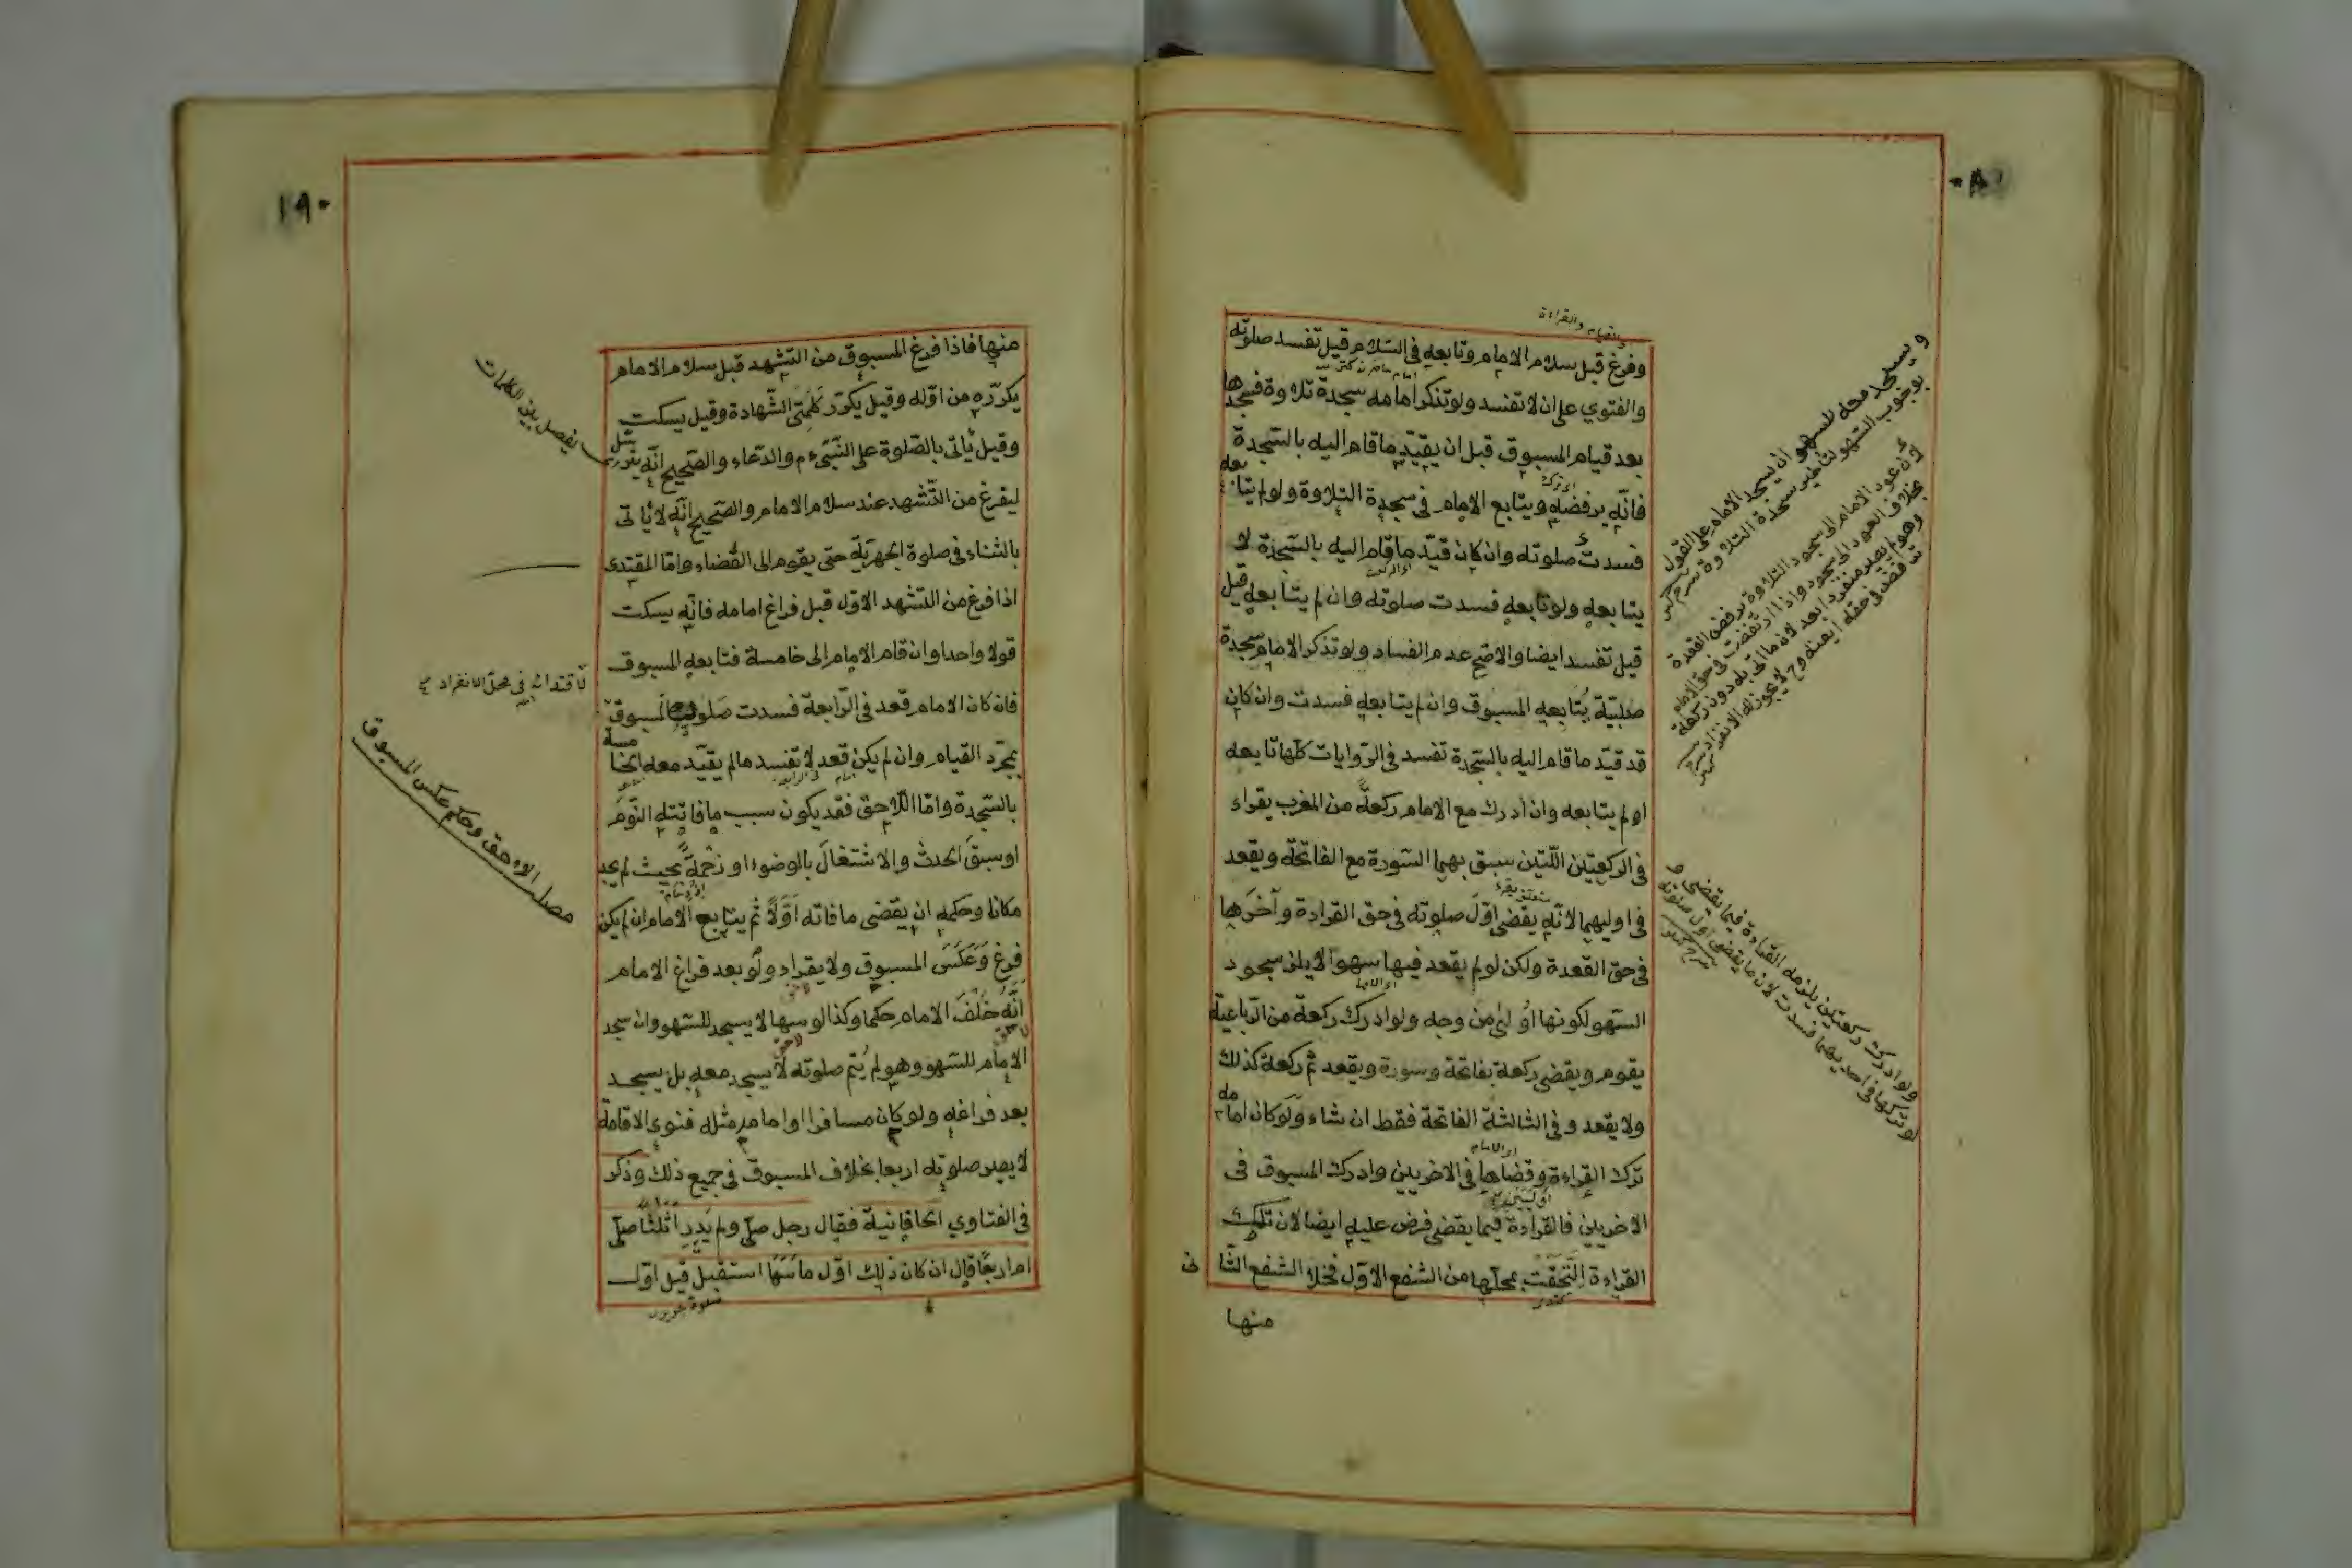 وفرغ قبل سلام الامام وتابعه فى السلام قيل تفسد صلوته
والفتوي على ان لا تفسد ولو تذكر امامه سجدة تلاوة فسجدها
بعد قيام المسبوق قبل ان يقيّد ما قام اليه بالسّجدة
فانّه يرفضه ويتابع الامام فى سجدة التلاوة ولو لم يتابعه
فسدت صلوته وان كان قيّد ما قام اليه بالسّجدة لا
يتابعه ولو تابعه فسدت صلوته وان لم يتابعه قيل
قيل تفسد ايضا والاصح عدم الفساد ولو تذكر الامام سجدة
صلبيّة يُتابعه المسبوق وان لم يتابعه فسدت وان كان
قد قيّد ما قام اليه بالسّجدة تفسد فى الرّوايات كلّها تابعه
او لم يتابعه وان ادرك مع الامام ركعة من المغرب يقراء
فى الركعتين اللّتين سبق بهما السّورة مع الفاتحة ويقعد
فى اوليهما لانّه يقضى اوّل صلوته فى حق القراءة وآخرها
فى حق القعدة ولكن لو لم يقعد فيها سهوا لا يلزمه سجود
السّهو لكونها اولى من وجه ولو ادرك ركعة من الرّباعيّة
يقوم ويقضى ركعة بفاتحة وسورة ويقعد ثم ركعة كذلك
ولا يقعد وفى الثالثة الفاتحة فقط ان شاء ولو كان امامه
ترك القراءة وقضاها فى الاخريين وادرك المسبوق فى
الاخريين فالقراءة فيما يقضى فرض عليه ايضا لان تلك
القراءة التحقت بمحلّها من الشفع الاوّل فخلا الشفع الثانى
منها
ويسجد معه للسهو ان سجد الامام على القول
بوجوب السّهو لتأخير سجدة التلاوة
لان عود الامام الى سجود التلاوة يرفض القعدة
ولو ادرك ركعتين يلزمه القراءة فيما يقضى
ولو تركها فى احديهما فسدت لان ما يقضى اول صلوته
١٩٠
منها فاذا فرغ المسبوق من التّشهد قبل سلام الامام
يكرّره من اوّله وقيل يكرّر كلمتى الشّهادة وقيل يسكت
وقيل يأتى بالصّلوة على النّبىّ ءم والدّعاء والصّحيح انّه يترسّل
ليفرغ من التّشهد عند سلام الامام والصّحيح انّه لا يأتى
بالثناء فى صلوة الجهريّة حتى يقوم الى القضاء وامّا المقتدى
اذا فرغ من التشهد الاوّل قبل فراغ امامه فانّه يسكت
قولا واحدا وان قام الامام الى خامسة فتابعه المسبوق
فان كان الامام قعد فى الرّابعة فسدت صلوة المسبوق
بمجرّد القيام وان لم يكن قعد لا تفسد ما لم يقيّد معه الخامسة
بالسّجدة وامّا اللاحق فقد يكون سبب ما فاتته النّوم
او سبق الحدث والاشتغال بالوضوء او زحمة بحيث لم يجد
مكانا وحكمه ان يقضى ما فاته اوّلا ثم يتابع الامام ان لم يكن
فرغ وعكس المسبوق ولا يقراء ولو بعد فراغ الامام
انّه خلف الامام حكما وكذا لو سها لا يسجد للسّهو وان سجد
الامام للسّهو وهو لم يُتمّ صلوته لا يسجد معه بل يسجد
بعد فراغه ولو كان مسافرا وامامه مثله فنوى الاقامة
لا يصير صلوته اربعا بخلاف المسبوق فى جميع ذلك وذكر
فى الفتاوي الخاقانية فقال رجل صلّى ولم يدر اثلثا صلّى
ام اربعًا قال ان كان ذلك اوّل ما سها استقبل قيل اوّل
يفصل بين الكلمات
لاقتدائه فى محلّ الانفراد
مصلى اللاحق وحكم عكس المسبوق